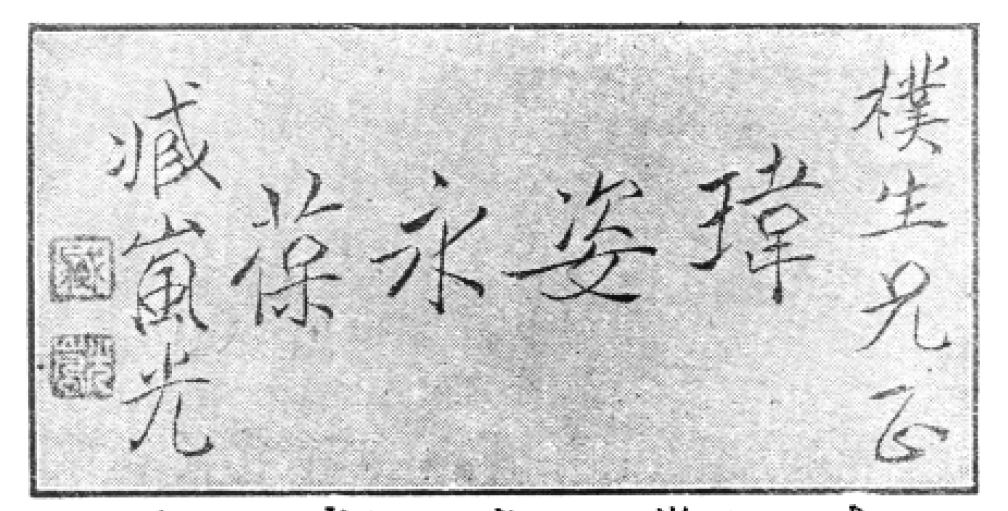 樸生兄正
瑋姿永葆
臧嵐光